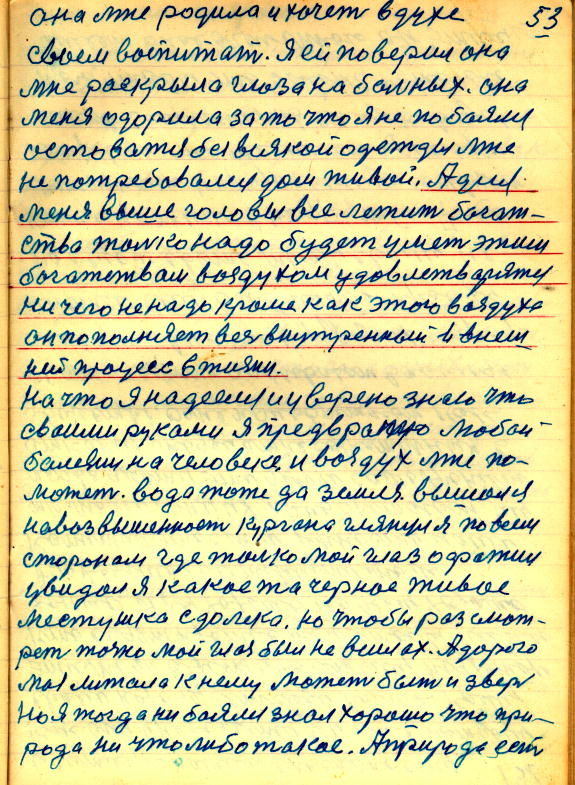 она мне родила и хочет в духе 53
своем воспитат. Я ей поверил она
мне раскрыла глаза на болных. она
меня одорила за то что я не побаялся
оставатя без всякой одежды мне
не потребовался дом живой. А для
меня выше головы все лежит богат-
ства толко надо будет умет этим
богатствам воздухом удовлетварятя
ни чего не надо кроме как этого воздуха
он пополняет вес внутренный и внеш
ний процес в жизни.
На что я надеялся и уверено знаю что
своими руками я предвращаю любой
болезни на человека и воздух мне по-
может. вода тоже да земля. вышол я
на возвышенност кургана глянул я по всем
сторонам где толко мой глаз офатил
увидал я какоета черное живое
местушка с далека. но чтобы разсмот-
рет точно мой глаз был не в силах. А дорога
моя лижала к нему может быт и звер
но я тогда ни баялся знал хорошо что при-
рода ни что либо такое. А природа ест